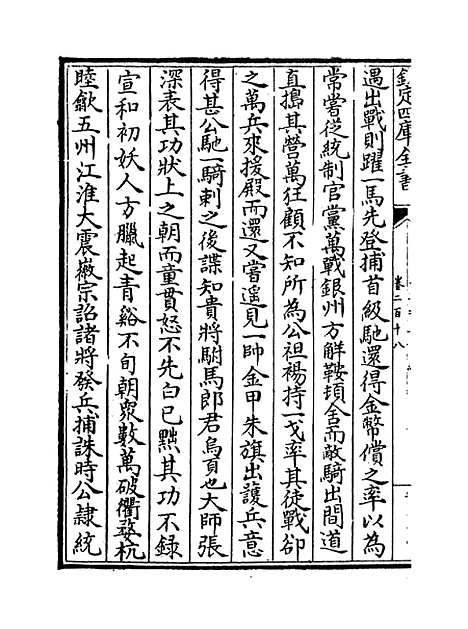 欽定四庫全書
卷二百十八
遇出戰則躍一馬先登捕首級馳還得金幣償之率以為
常嘗從統制官黨萬戰銀州方解鞍頓舍而敵騎出間道
直搗其營萬狂顧不知所為公袒裼持一戈率其徒戰卻
之萬兵來援殿而還又嘗遥見一帥金甲朱旗出護兵意
得甚公馳一騎刺之後諜知貴將駙馬郎君烏頁也大師張
深表其功狀上之朝而童貫怒不先白已黜其功不録
宣和初妖人方臘起青谿不旬朝衆數萬破衢婺杭
睦歙五州江淮大震徽宗詔諸將發兵捕誅時公隷統